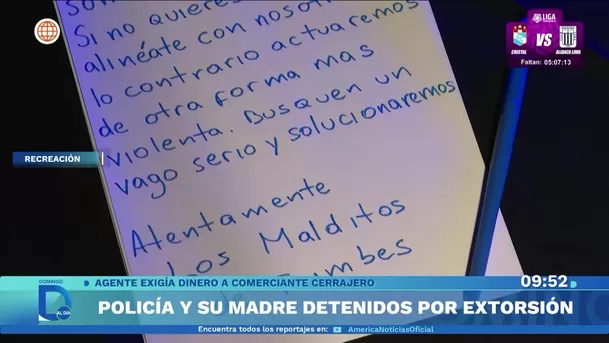 Si no quiere
alinéate con nosot
lo contrario actuaremos
de otra forma mas
violenta. Busquen un
vago serio y solucionaremos
Atentamente
Los Malditos
umbes
LIGA
CRISTAL VS ALIANZA LIMA
Faltan: 05:07:13
RECREACIÓN
DOMINGO
D AL DÍA
AGENTE EXIGÍA DINERO A COMERCIANTE CERRAJERO
09:52
POLICÍA Y SU MADRE DETENIDOS POR EXTORSIÓN
Encuentra todos los reportajes en: AmericaNoticiasOficial